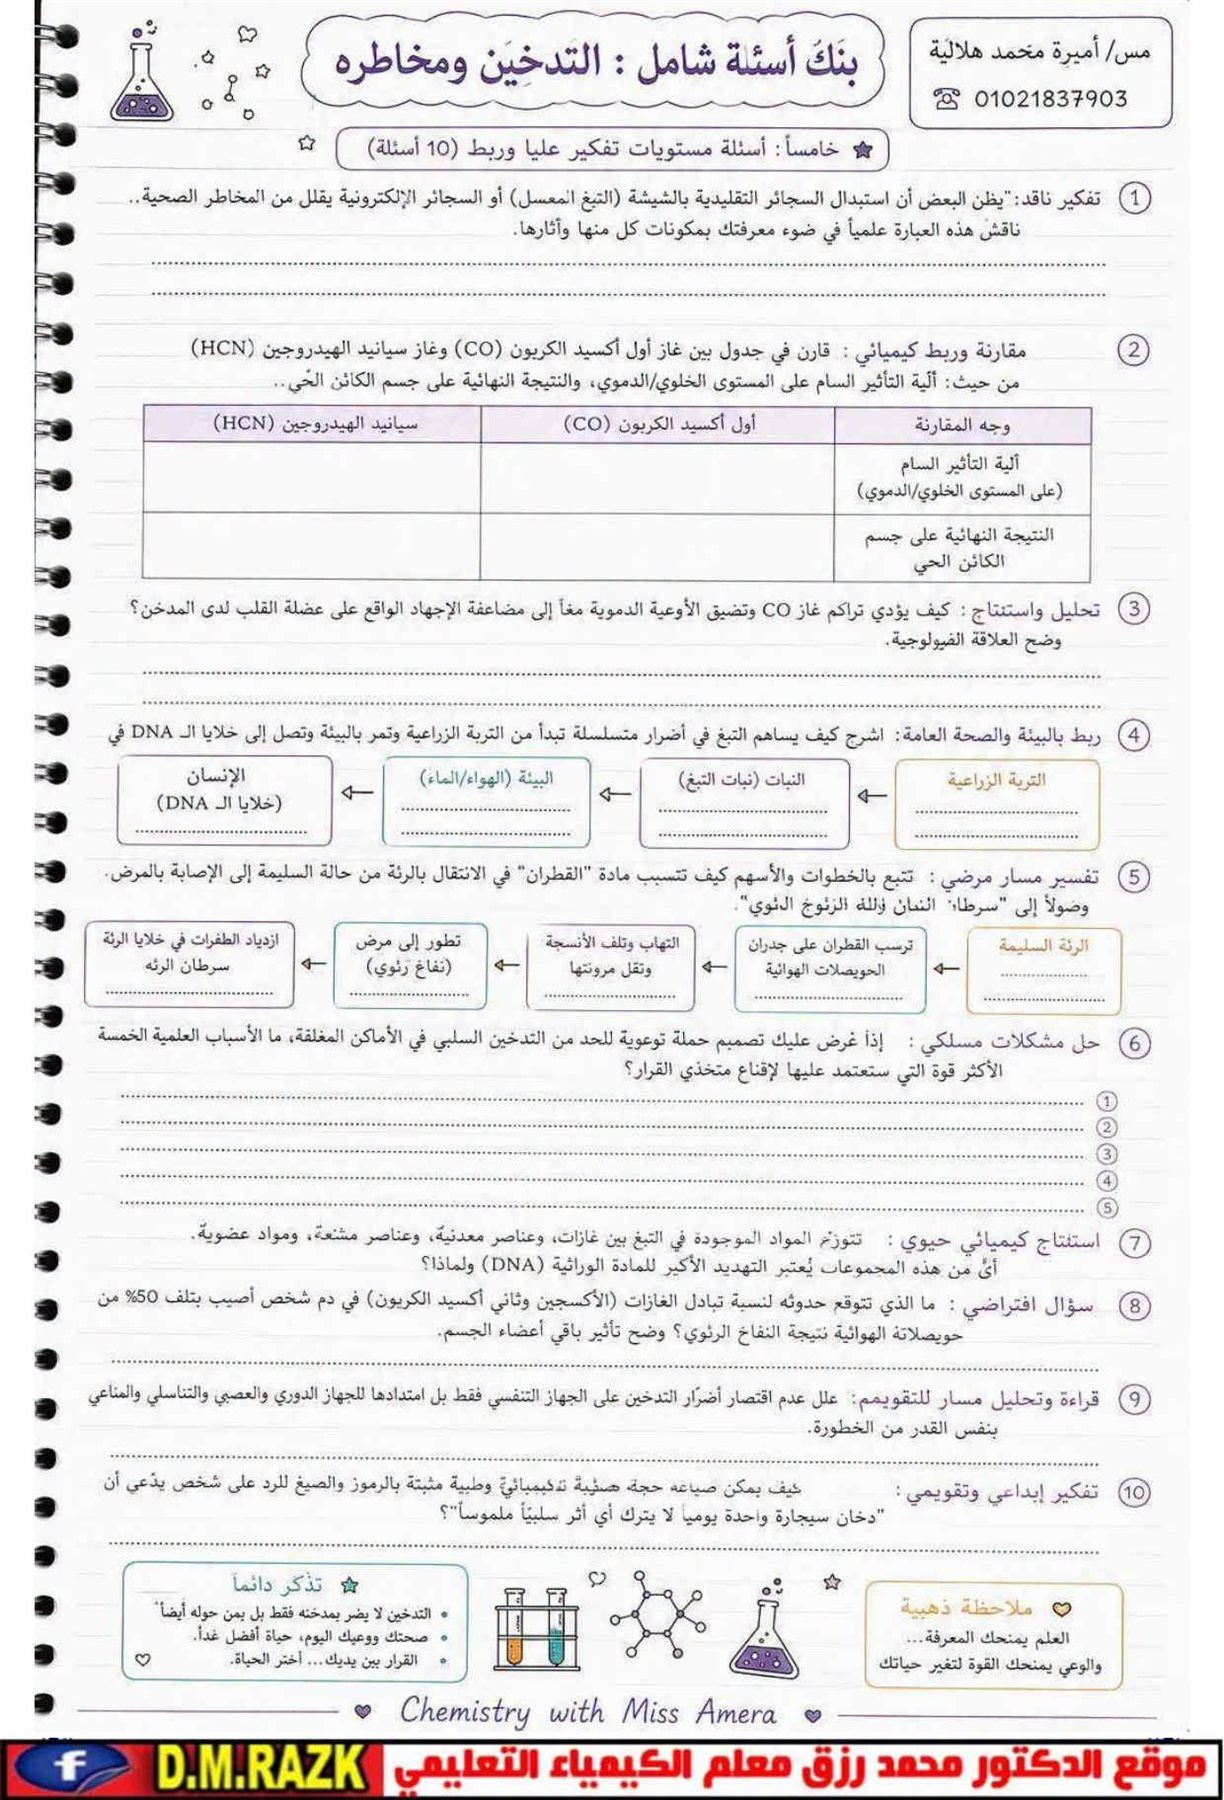 مس/ أميرة محمد هلالية
01021837903
بنك أسئلة شامل : التدخين ومخاطره
خامساً: أسئلة مستويات تفكير عليا وربط (10 أسئلة)
1 تفكير ناقد:"يظن البعض أن استبدال السجائر التقليدية بالشيشة (التبغ المعسل) أو السجائر الإلكترونية يقلل من المخاطر الصحية..
ناقش هذه العبارة علمياً في ضوء معرفتك بمكونات كل منها وأثارها.
2 مقارنة وربط كيميائي : قارن في جدول بين غاز أول أكسيد الكربون (CO) وغاز سيانيد الهيدروجين (HCN)
من حيث: آلية التأثير السام على المستوى الخلوي/الدموي، والنتيجة النهائية على جسم الكائن الحي..
وجه المقارنة أول أكسيد الكربون (CO) سيانيد الهيدروجين (HCN)
ألية التأثير السام
(على المستوى الخلوي/الدموي)
النتيجة النهائية على جسم
الكائن الحي
3 تحليل واستنتاج : كيف يؤدي تراكم غاز CO وتضيق الأوعية الدموية معاً إلى مضاعفة الإجهاد الواقع على عضلة القلب لدى المدخن؟
وضح العلاقة الفيولوجية.
4 ربط بالبيئة والصحة العامة: اشرح كيف يساهم التبغ في أضرار متسلسلة تبدأ من التربة الزراعية وتمر بالبيئة وتصل إلى خلايا الـ DNA في
التربة الزراعية
النبات (نبات التبغ)
البيئة (الهواء/الماء)
الإنسان
(خلايا الـ DNA)
5 تفسير مسار مرضي : تتبع بالخطوات والأسهم كيف تتسبب مادة "القطران" في الانتقال بالرئة من حالة السليمة إلى الإصابة بالمرض.
وصولاً إلى "سرطان
الرئة السليمة
ترسب القطران على جدران
الحويصلات الهوائية
التهاب وتلف الأنسجة
وتقل مرونتها
تطور إلى مرض
(نفاخ رئوي)
ازدياد الطفرات في خلايا الرئة
سرطان الرئه
6 حل مشكلات مسلكي : إذا غرض عليك تصميم حملة توعوية للحد من التدخين السلبي في الأماكن المغلقة، ما الأسباب العلمية الخمسة
الأكثر قوة التي ستعتمد عليها لإقناع متخذي القرار؟
1
2
3
4
5
7 استنتاج كيميائي حيوي : تتوزع المواد الموجودة في التبغ بين غازات، وعناصر معدنية، وعناصر مشعة، ومواد عضوية.
أيّ من هذه المجموعات يُعتبر التهديد الأكبر للمادة الوراثية (DNA) ولماذا؟
8 سؤال افتراضي : ما الذي تتوقع حدوثه لنسبة تبادل الغازات (الأكسجين وثاني أكسيد الكربون) في دم شخص أصيب بتلف 50% من
حويصلاتة الهوائية نتيجة النفاخ الرئوي؟ وضح تأثير باقي أعضاء الجسم.
9 قراءة وتحليل مسار للتقويمم: علل عدم اقتصار أضرار التدخين على الجهاز التنفسي فقط بل امتدادها للجهاز الدوري والعصبي والتناسلي والمناعي
بنفس القدر من الخطورة.
10 تفكير إبداعي وتقويمي : كيف يمكن صياغه حجة وطبية مثبتة بالرموز والصيغ للرد على شخص يدّعي أن
"دخان سيجارة واحدة يومياً لا يترك أي أثر سلبيّاً ملموساً"؟
ملاحظة ذهبية
العلم يمنحك المعرفة...
والوعي يمنحك القوة لتغير حياتك
تذكر دائماً
• التدخين لا يضر بمدخنه فقط بل بمن حوله أيضاً
• صحتك ووعيك اليوم، حياة أفضل غداً.
• القرار بين يديك... أختر الحياة.
Chemistry with Miss Amera
موقع الدكتور محمد رزق معلم الكيمياء التعليمي D.M.RAZK f